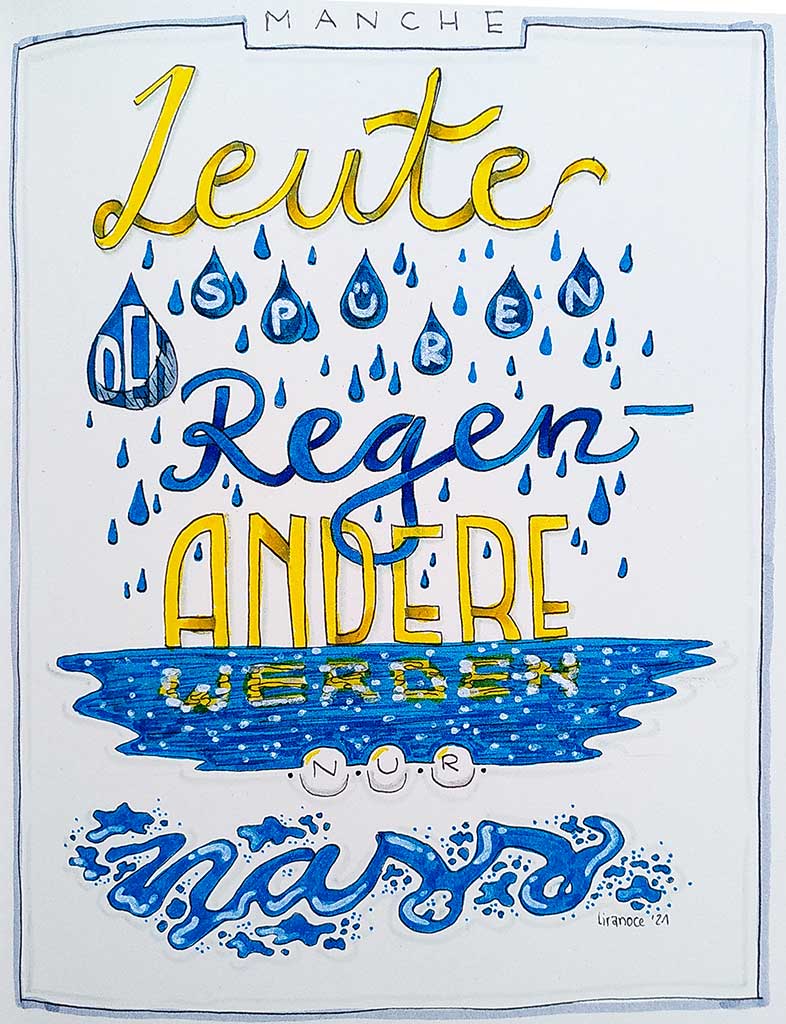 MANCHE
Leute
DEN SPÜREN
Regen–
ANDERE
WERDEN
.N.U.R.
nass.
liranoce '21